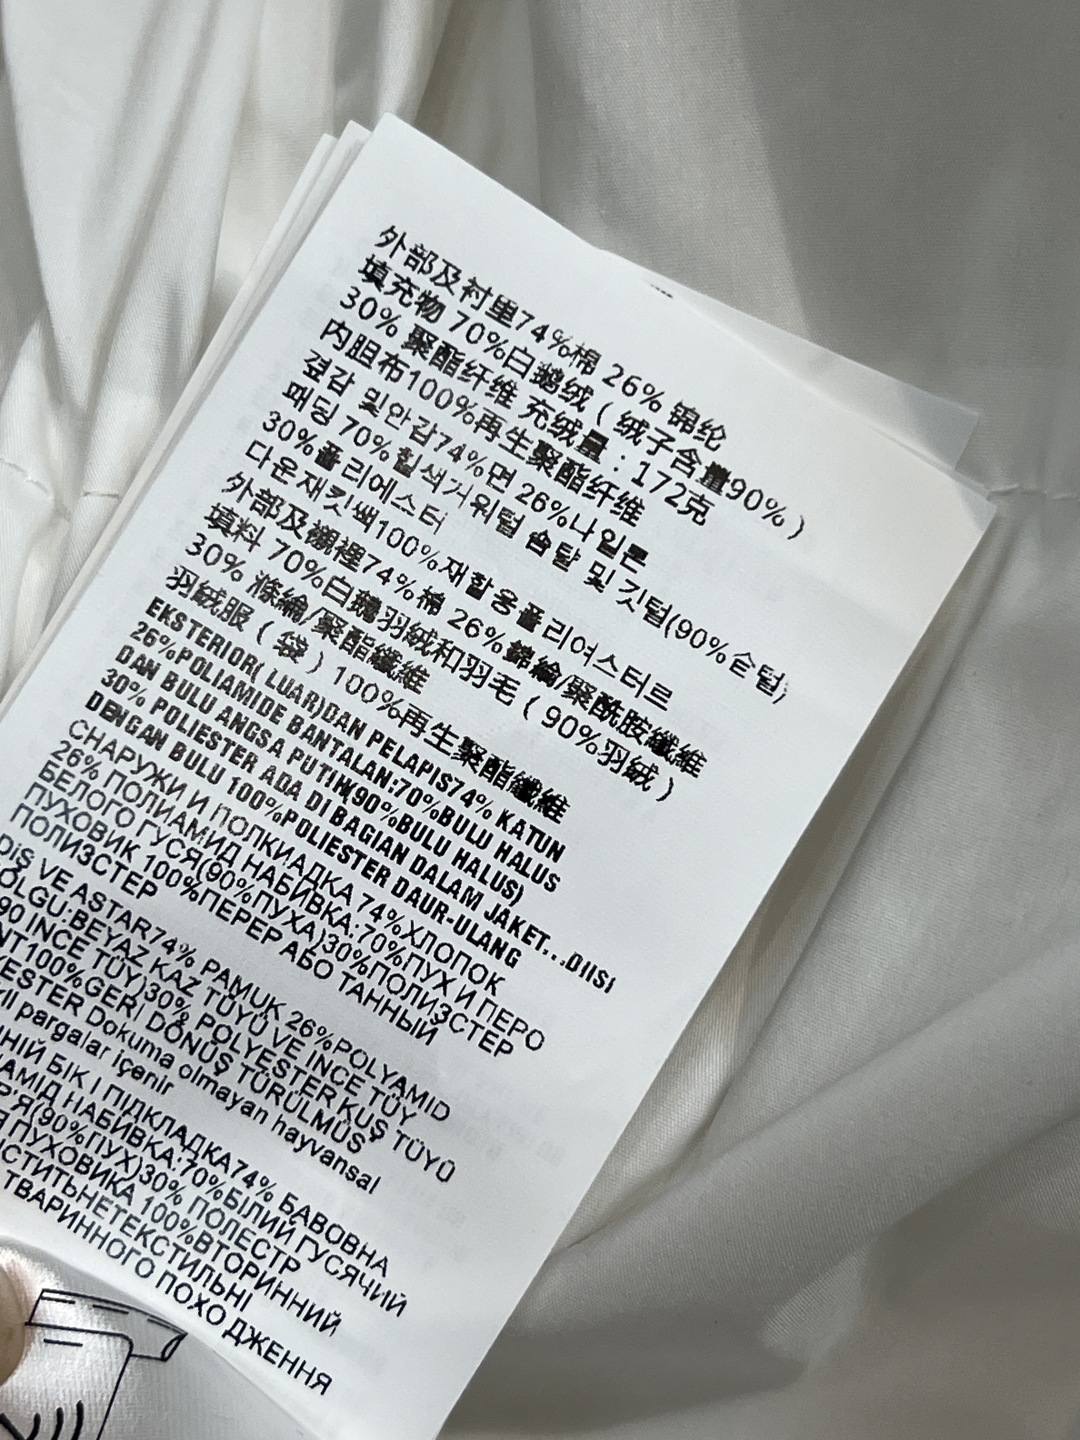 外部及衬里74%棉 26% 锦纶
填充物 70%白鹅绒（绒子含量90%）
30% 聚酯纤维 充绒量：172克
内胆布100%再生聚酯纤维
겉감 및안감74%면 26%나일론
패딩 70%흰색거위털 솜털 및 깃털(90%솜털)
30%폴리에스터
다운재킷백100%재활용폴리에스터르
外部及襯裡74%棉 26%錦綸/聚酰胺纖維
填料 70%白鵝羽絨和羽毛（90%羽絨）
30% 滌綸/聚酯纖維
羽絨服（袋）100%再生聚酯纖維
EKSTERIOR( LUAR)DAN PELAPIS74% KATUN
26%POLIAMIDE BANTALAN:70%BULU HALUS
DAN BULU ANGSA PUTIH(90%BULU HALUS)
30% POLIESTER ADA DI BAGIAN DALAM JAKET...DIISI
DENGAN BULU 100%POLIESTER DAUR-ULANG
СНАРУЖИ И ПОЛКИАДКА 74%ХЛОПОК
26% ПОЛИАМИД НАБИВКА:70%ПУХ И ПЕРО
БЕЛОГО ГУСЯ(90%ПУХА)30%ПОЛИЗСТЕР
ПУХОВИК 100%ПЕРЕР АБО ТАННЫЙ
ПОЛИЗСТЕР
DIŞ VE ASTAR74% PAMUK 26%POLYAMID
DOLGU:BEYAZ KAZ TÜYÜ VE INCE TÜY
90 INCE TÜY)30% POLYESTER KUŞ TÜYÜ
NT100%GERI DÖNÜŞ TÜRÜLMÜS
YESTER Dokuma olmayan hayvansal
pargalar içenir
НІЙ БІК І ПІДКЛАДКА74% БАВОВНА
АМІД НАБИВКА:70%БІЛИЙ ГУСЯЧИЙ
Р'Я(90%ПУХ)30% ПОЛЕСТР
ПУХОВИКА 100%ВТОРИННИЙ
СТИТЬНЕТЕКСТИЛЬНІ
ТВАРИННОГО ПОХО ДЖЕННЯ